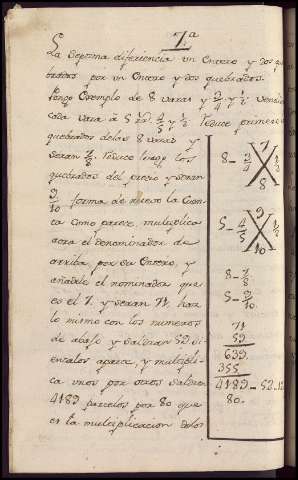 7.a
La Septima diferiencia un Entero y dos que
brados por un Entero y dos quebrados.
Pongo Exemplo de 8 varas y 3/4 y 1/2 vendida
cada vara à 5 4/5 y 1/2 Reduce primero
quebrados delas 8 varas y
seran 7/8. Reduce luego los
quebrados del precio y seran
9/10 forma de nuevo la cuen
ta como parece, multiplica
aora el denominador de
arriba, por su Entero, y
añadele el nominador que
es el 7. y seran 71. haz
lo mismo con los numeros
de abajo y saldran 59. di
en salos aparte, y multipli
ca unos por otros saldran
4189 parcelos por 80 que
es la multiplicacion delos
8 - 3/4 1/2
7
8
5 - 4/5 1/2
9
10
8 - 7/8
5 - 9/10
71
59
639
355
4189 - 52
80.